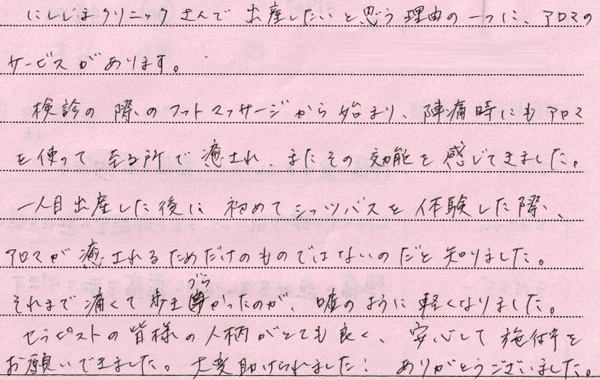 にしじまクリニックさんで出産したいと思う理由の一つに、アロマの
サービスがあります。
検診の際のフットマッサージから始まり、陣痛時にもアロマ
を使って至る所で癒され、またその効能を感じてきました。
一人目出産した後に初めてシッツバスを体験した際、
アロマが癒されるためだけのものではないのだと知りました。
それまで痛くて歩き づらかったのが、嘘のように軽くなりました。
セラピストの皆様の人柄がとても良く、安心して施術を
お願いできました。大変助けられました! ありがとうございました。